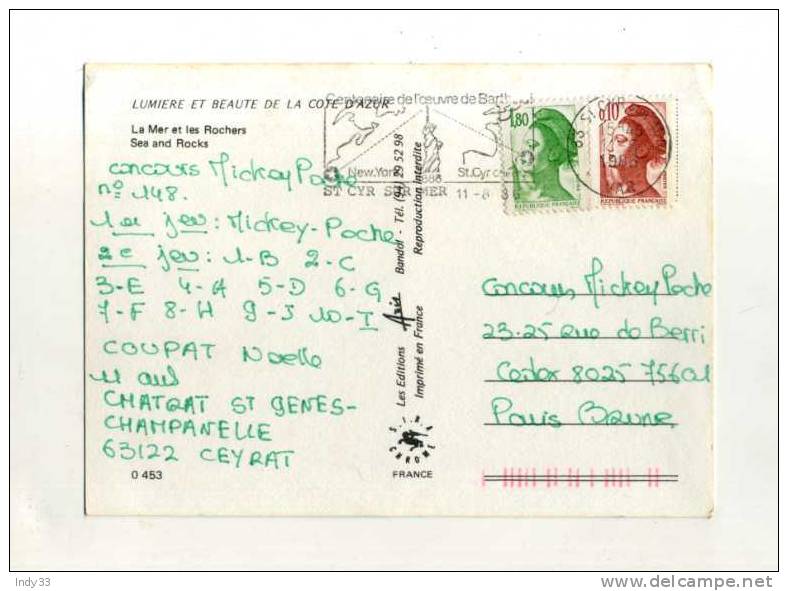 LUMIERE ET BEAUTE DE LA COTE D'AZUR
La Mer et les Rochers
Sea and Rocks
Concours Mickey Poche
n° 148.
1er jeu : Mickey-Poche
2e jeu : 1-B 2-C
3-E 4-A 5-D 6-G
7-F 8-H 9-J 10-I
COUPAT Noelle
11 ans
CHATRAT ST GENES-
CHAMPANELLE
63122 CEYRAT
0 453
Centenaire de l'œuvre de Barth
New York 1886
St. Cyr
ST CYR SUR MER 11-8
1,80
REPUBLIQUE FRANÇAISE
0,10
REPUBLIQUE FRANÇAISE
VAR
Les Editions Axis Bandol - Tél. (94) 29 52 98
Imprimé en France Reproduction interdite
CHROME
FRANCE
Concours Mickey Poche
23-25 Rue de Berri
Cedex 8025 756
Paris Brune
Indy33
delcampe.net